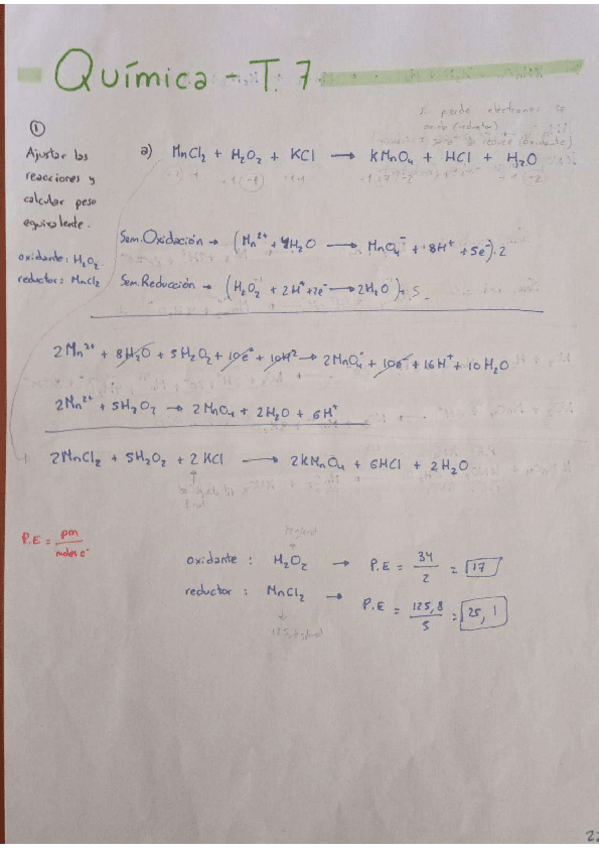 Química - T. 7
Si pierde electrones se
①
Ajustar las
reacciones y
calcular peso
equivalente.
oxidante: H₂O₂
reductor: MnCl₂
a) MnCl₂ + H₂O₂ + KCl → KMnO₄ + HCl + H₂O
Sem. Oxidación → (Mn²⁺ + 4H₂O → MnO₄⁻ + 8H⁺ + 5e⁻)·2
Sem. Reducción → (H₂O₂ + 2H⁺ + 2e⁻ → 2H₂O)·5
2Mn²⁺ + 8H₂O + 5H₂O₂ + 10e⁻ + 10H⁺ → 2MnO₄⁻ + 10e⁻ + 16H⁺ + 10H₂O
2Mn²⁺ + 5H₂O₂ → 2MnO₄ + 2H₂O + 6H⁺
2MnCl₂ + 5H₂O₂ + 2KCl → 2KMnO₄ + 6HCl + 2H₂O
P.E = pm / moles e⁻
oxidante : H₂O₂ → P.E = 34 / 2 = 17
reductor : MnCl₂ → P.E = 125,8 / 5 = 25,1